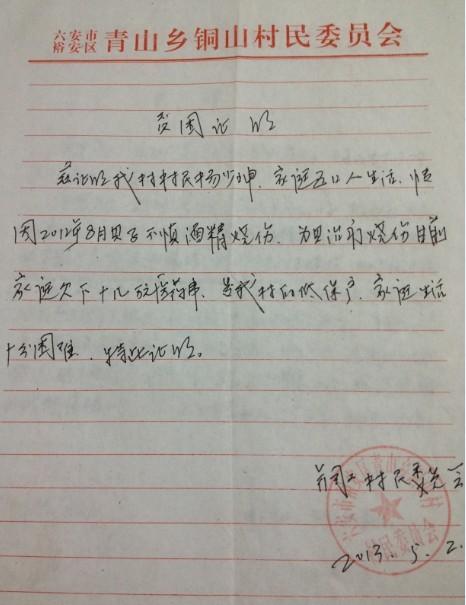 六安市裕安区 青山乡铜山村民委员会
贫困证明
兹证明我村村民杨少坤，家庭五口人生活，但
因2012年8月其子不慎酒精烧伤，为其治疗烧伤目前
家庭欠下十几万医药费，是我村的低保户，家庭生活
十分困难，特此证明。
铜山村民委员会
2013.5.2.